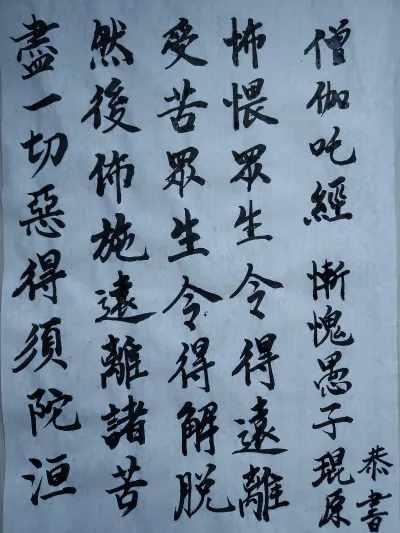 僧伽吒經 慚愧愚子琨原
恭書
怖愄眾生令得遠離
受苦眾生令得解脫
然後佈施遠離諸苦
盡一切惡得須陀洹